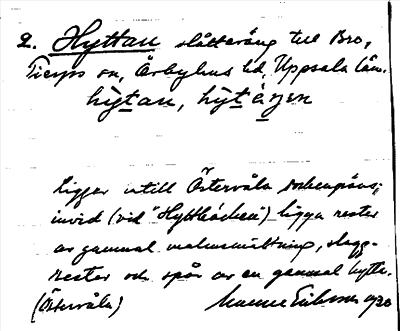 2. Hyttan slåtteräng till Bro,
Tierps sn, Örbyhus hd, Uppsala län.
hỳtan, hỳtäŋen
Ligger intill Östervåla sockengräns;
invid (vid "Hyttbäcken") ligga rester
av gammal malmsmältning, slagg-
rester och spår av en gammal hytta.
(Östervåla) Manne Eriksson 1920